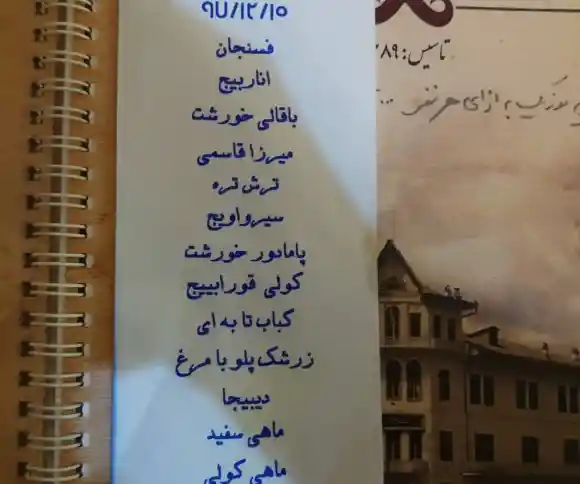 ۹۷/۱۲/۱۰
فسنجان
اناربیج
باقالی خورشت
میرزا قاسمی
ترش تره
سیرواویج
پامادور خورشت
کولی قورابییج
کباب تا به ای
زرشک پلو با مرغ
دیبیجا
ماهی سفید
ماهی کولی
تاسیس: ۸۹
به ازای هر نفر ...